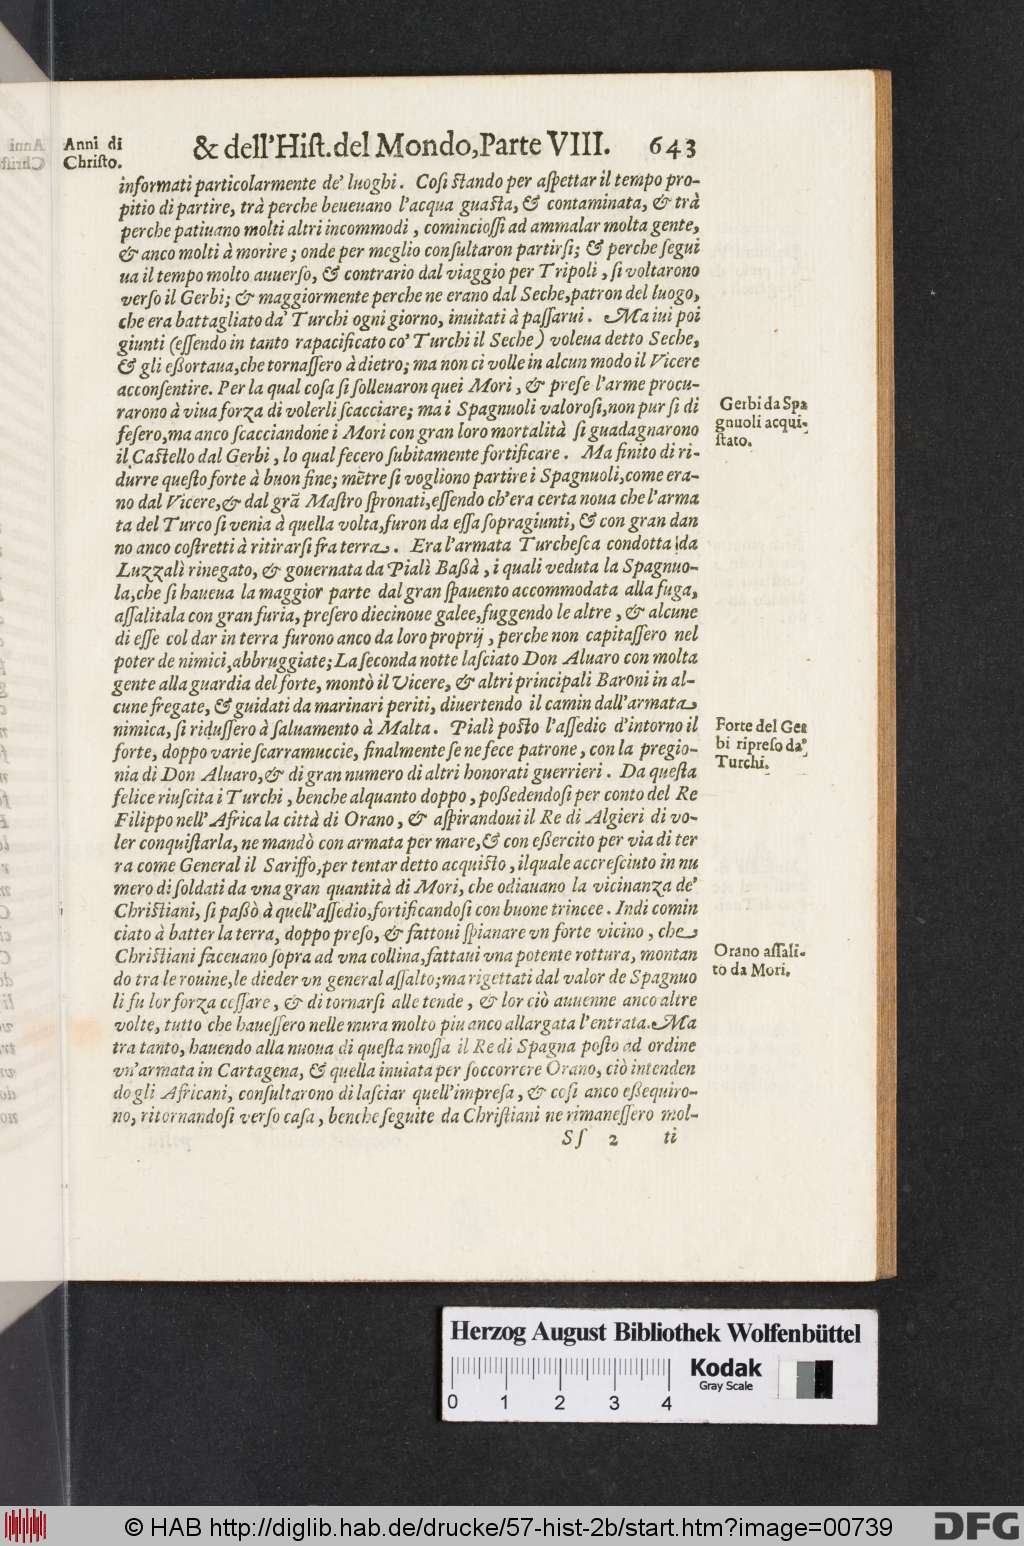 Anni di
Christo.
& dell'Hiſt. del Mondo, Parte VIII. 643
informati particolarmente de' luoghi. Coſi ſtando per aſpettar il tempo pro-
pitio di partire, trà perche beueuano l'acqua guaſta, & contaminata, & trà
perche patiuano molti altri incommodi, comincioſſi ad ammalar molta gente,
& anco molti à morire; onde per meglio conſultaron partirſi; & perche ſegui
ua il tempo molto auuerſo, & contrario dal viaggio per Tripoli, ſi voltarono
verſo il Gerbi; & maggiormente perche ne erano dal Seche, patron del luogo,
che era battagliato da' Turchi ogni giorno, inuitati à paſſarui. Ma iui poi
giunti (eſſendo in tanto rapacificato co' Turchi il Seche) voleua detto Seche,
& gli eßortaua, che tornaſſero à dietro; ma non ci volle in alcun modo il Vicere
acconſentire. Per la qual coſa ſi ſolleuaron quei Mori, & preſe l'arme procu-
rarono à viua forza di volerli ſcacciare; ma i Spagnuoli valoroſi, non pur ſi di
feſero, ma anco ſcacciandone i Mori con gran loro mortalità ſi guadagnarono
il Caſtello dal Gerbi, lo qual fecero ſubitamente fortificare. Ma finito di ri-
durre queſto forte à buon fine; mẽtre ſi vogliono partire i Spagnuoli, come era-
no dal Vicere, & dal grã Maſtro ſpronati, eſſendo ch'era certa noua che l'arma
ta del Turco ſi venia à quella volta, furon da eſſa ſopragiunti, & con gran dan
no anco coſtretti à ritirarſi fra terra. Era l'armata Turcheſca condotta da
Luzzalì rinegato, & gouernata da Pialì Baßà, i quali veduta la Spagnuo-
la, che ſi haueua la maggior parte dal gran ſpauento accommodata alla fuga,
aſſalitala con gran furia, preſero diecinoue galee, fuggendo le altre, & alcune
di eſſe col dar in terra furono anco da loro proprij, perche non capitaſſero nel
poter de nimici, abbruggiate; La ſeconda notte laſciato Don Aluaro con molta
gente alla guardia del forte, montò il Vicere, & altri principali Baroni in al-
cune fregate, & guidati da marinari periti, diuertendo il camin dall'armata
nimica, ſi riduſſero à ſaluamento à Malta. Pialì poſto l'aſſedio d'intorno il
forte, doppo varie ſcarramuccie, finalmente ſe ne fece patrone, con la pregio-
nia di Don Aluaro, & di gran numero di altri honorati guerrieri. Da queſta
felice riuſcita i Turchi, benche alquanto doppo, poßedendoſi per conto del Re
Filippo nell'Africa la città di Orano, & aſpirandoui il Re di Algieri di vo-
ler conquiſtarla, ne mandò con armata per mare, & con eßercito per via di ter
ra come General il Sariffo, per tentar detto acquiſto, il quale accreſciuto in nu
mero di ſoldati da vna gran quantità di Mori, che odiauano la vicinanza de'
Chriſtiani, ſi paßò à quell'aſſedio, fortificandoſi con buone trincee. Indi comin
ciato à batter la terra, doppo preſo, & fattoui ſpianare vn forte vicino, che
Chriſtiani faceuano ſopra ad vna collina, fattaui vna potente rottura, montan
do tra le rouine, le dieder vn general aſſalto; ma rigettati dal valor de Spagnuo
li fu lor forza ceſſare, & di tornarſi alle tende, & lor ciò auuenne anco altre
volte, tutto che haueſſero nelle mura molto piu anco allargata l'entrata. Ma
tra tanto, hauendo alla nuoua di queſta moſſa il Re di Spagna poſto ad ordine
vn'armata in Cartagena, & quella inuiata per ſoccorrere Orano, ciò intenden
do gli Africani, conſultarono di laſciar quell'impreſa, & coſi anco eßequiro-
no, ritornandoſi verſo caſa, benche ſeguite da Chriſtiani ne rimaneſſero mol-
Sſ 2 ti
Gerbi da Spa
gnuoli acqui-
ſtato.
Forte del Ger
bi ripreſo da'
Turchi.
Orano aſſali-
to da Mori.
Herzog August Bibliothek Wolfenbüttel
Kodak
Gray Scale
0 1 2 3 4
© HAB http://diglib.hab.de/drucke/57-hist-2b/start.htm?image=00739
DFG